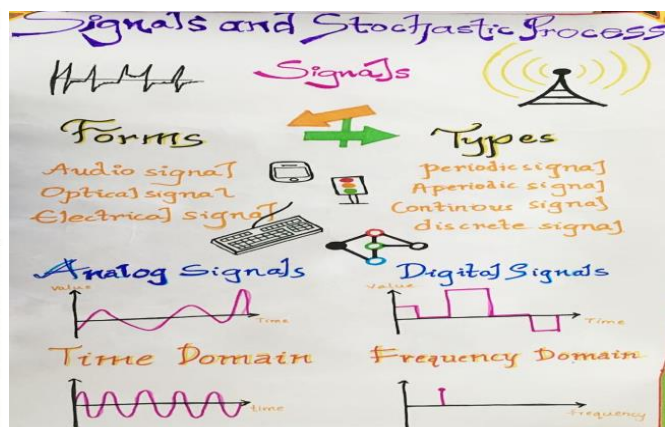 Signals and Stochastic Process
Signals
Forms
Types
Audio signal
Optical signal
Electrical signal
periodic signal
Aperiodic signal
Continous signal
discrete signal
Analog Signals
Digital Signals
Value
Time
Value
Time
Time Domain
Frequency Domain
time
frequency